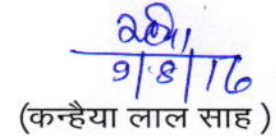 9/8/16
(कन्हैया लाल साह )